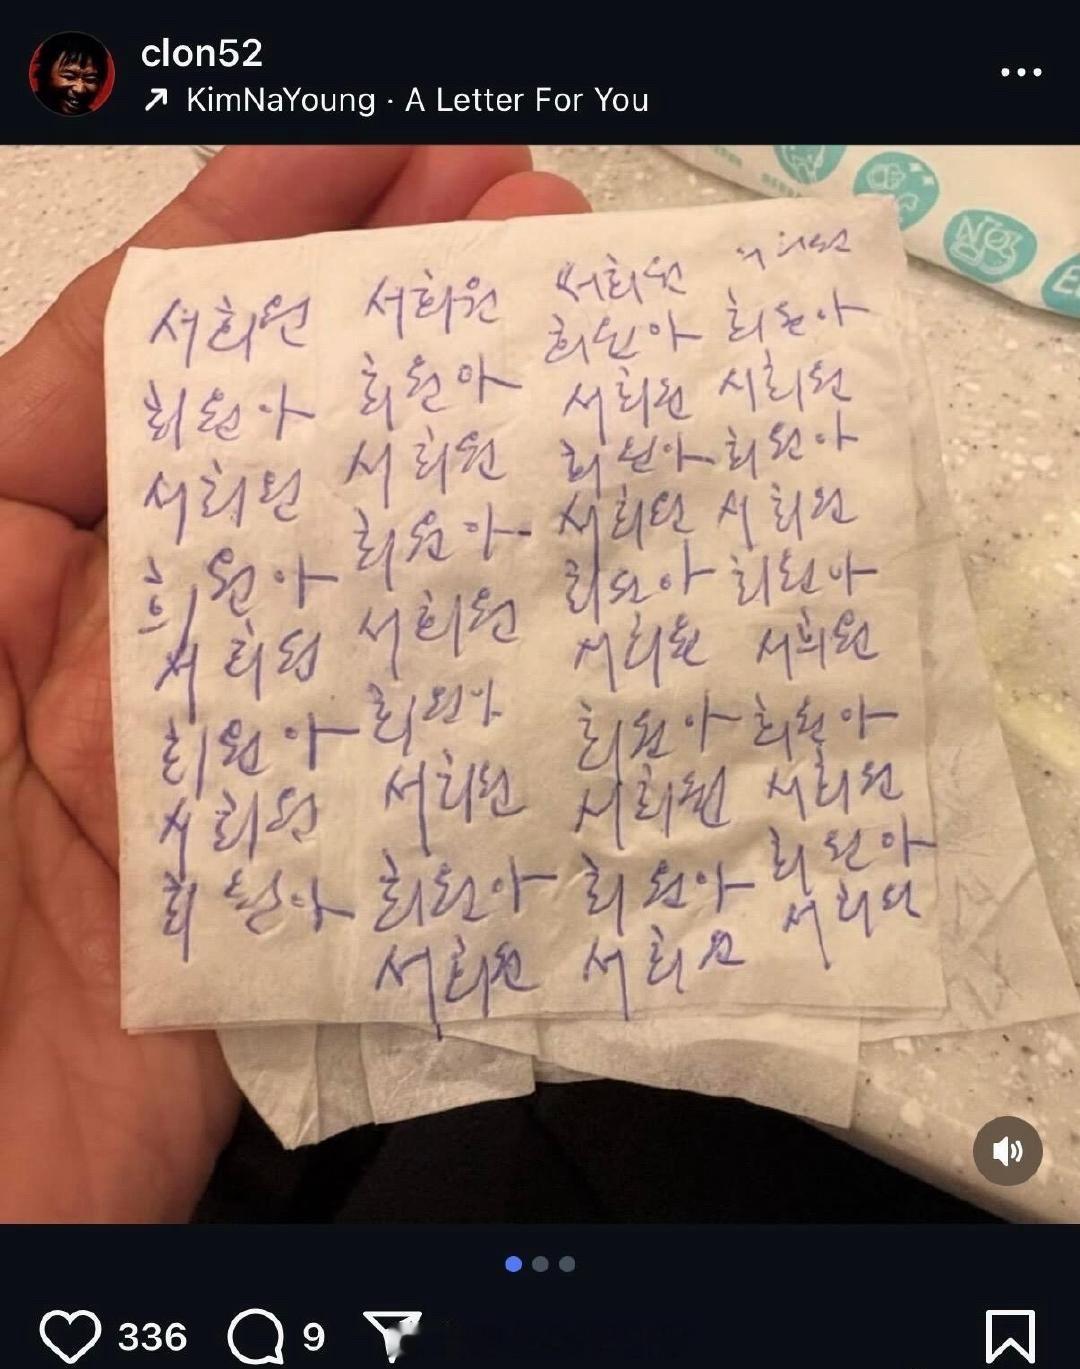 clon52
KimNaYoung · A Letter For You
서희원
희원아
서희원
희원아
서희원
희원아
서희원
희원아
서희원
희원아
서희원
희원아
서희원
희원아
서희원
희원아
서희원
서희원
희원아
서희원
희원아
서희원
희원아
서희원
희원아
서희원
희원아
서희원
서희원
희원아
서희원
희원아
서희원
희원아
서희원
희원아
서희원
희원아
서희원
NO
336
9